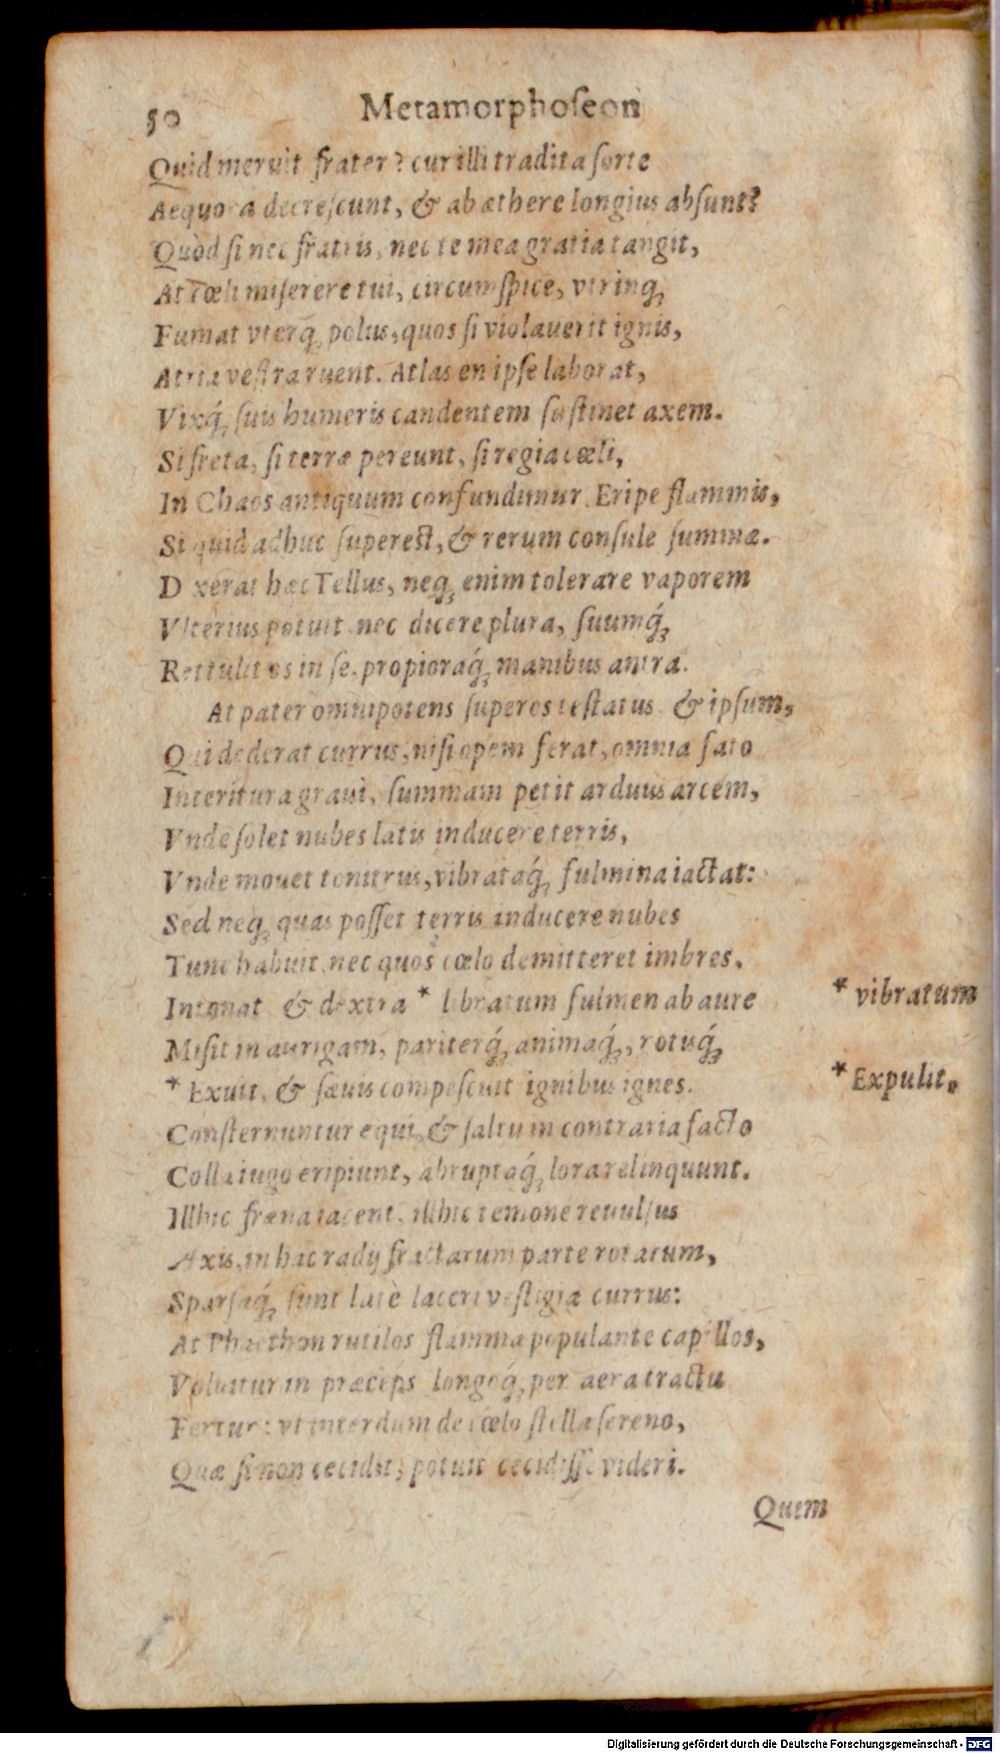 50 Metamorphoſeon
Quid meruit frater? cur illi tradita ſorte
Aequora decreſcunt, & ab æthere longius abſunt?
Quòd ſi nec fratris, nec te mea gratia tangit,
At cœli miſerere tui, circumſpice, vtrinq;
Fumat vterq; polus, quos ſi violauerit ignis,
Atria veſtra ruent. Atlas en ipſe laborat,
Vixq́; ſuis humeris candentem ſuſtinet axem.
Si freta, ſi terræ pereunt, ſi regia cœli,
In Chaos antiquum confundimur. Eripe flammis,
Si quid adhuc ſupereſt, & rerum conſule ſummæ.
Dixerat hæc Tellus, neq; enim tolerare vaporem
Vlterius potuit nec dicere plura, ſuumq́;
Rettulit os in ſe, propioraq́; manibus antra.
At pater omnipotens ſuperos teſtatus & ipſum,
Qui dederat currus, niſi opem ferat, omnia fato
Interitura graui, ſummam petit arduus arcem,
Vnde ſolet nubes latis inducere terris,
Vnde mouet tonitrus, vibrataq́; fulmina iactat:
Sed neq; quas poſſet terris inducere nubes
Tunc habuit, nec quos cœlo demitteret imbres.
Intonat & dextra * libratum fulmen ab aure * vibratum
Miſit in aurigam, pariterq́; animaq́;, rotiſq́;
* Exuit, & ſæuis compeſcuit ignibus ignes. * Expulit.
Conſternuntur equi, & ſaltu in contraria facto
Colla iugo eripiunt, abruptaq́; lora relinquunt.
Illhic fræna iacent, illhic temone reuulſus
Axis, in hac radij fractarum parte rotarum,
Sparſaq́; ſunt latè laceri veſtigia currus:
At Phaethon rutilos flamma populante capillos,
Voluitur in præceps longoq́; per aera tractu
Fertur: vt interdum de cœlo ſtella ſereno,
Quæ ſi non cecidit, potuit cecidiſſe videri.
Quem
Digitalisierung gefördert durch die Deutsche Forschungsgemeinschaft - DFG